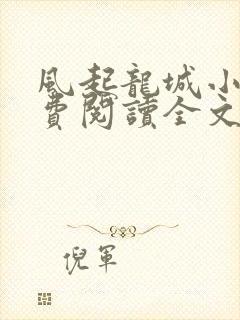 風起龍城小
費閱讀全文
倪軍